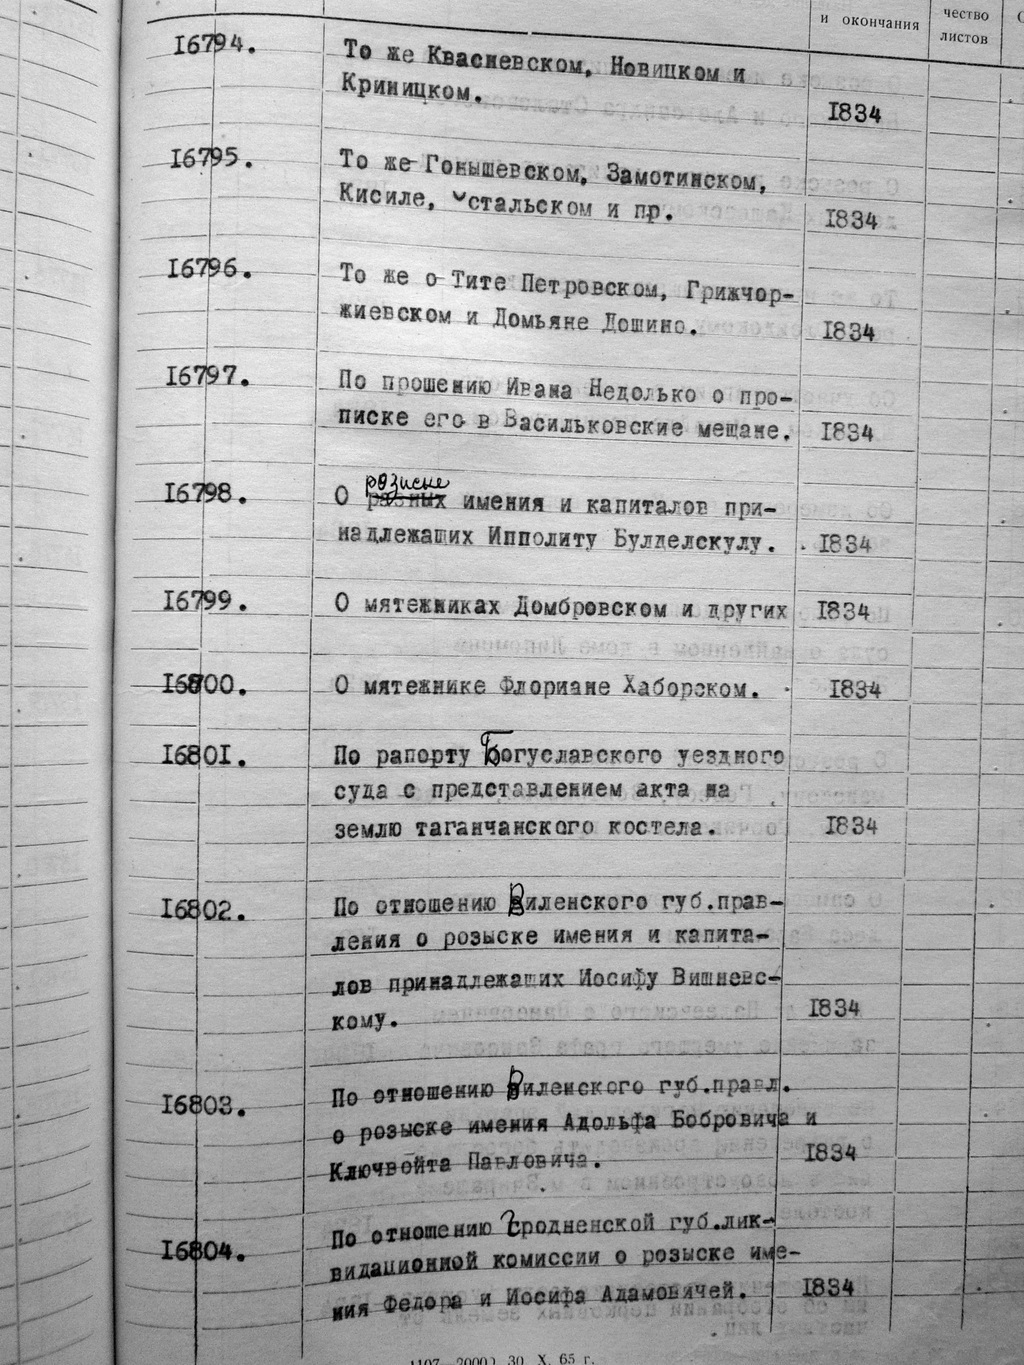 и окончания
чество
листов
16794.
То же Квасневском, Новицком и
Криницком.
1834
16795.
То же Гонышевском, Замотинском,
Кисиле, стальском и пр.
1834
16796.
То же о Тите Петровском, Грижчор-
жиевском и Домьяне Дошино.
1834
16797.
По прошению Ивана Недолько о про-
писке его в Васильковские мещане.
1834
16798.
розыске
О разных имения и капиталов при-
надлежащих Ипполиту Булделскулу.
1834
16799.
О мятежниках Домбровском и других
1834
16800.
О мятежнике Флориане Хаборском.
1834
16801.
По рапорту Богуславского уездного
суда с представлением акта на
землю таганчанского костела.
1834
16802.
По отношению Виленского губ.прав-
ления о розыске имения и капита-
лов принадлежащих Иосифу Вишневс-
кому.
1834
16803.
По отношению Виленского губ.правл.
о розыске имения Адольфа Бобровича и
Ключвойта Павловича.
1834
16804.
По отношению Гродненской губ.лик-
видационной комиссии о розыске име-
ния Федора и Иосифа Адамовичей.
1834
1107—2000 30. X. 65 г.